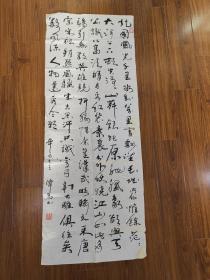 北国风光千里冰封万里雪飘望长城内外惟余莽
大河上下顿失滔滔山舞银蛇原驰蜡象欲与天
公试比高须晴日看红装素裹分外妖娆江山如此多
娇引无数英雄竞折腰惜秦皇汉武略输文采唐
宗宋祖稍逊风骚一代天骄成吉思汗只识弯弓射大雕俱往矣
数风流人物还看今朝